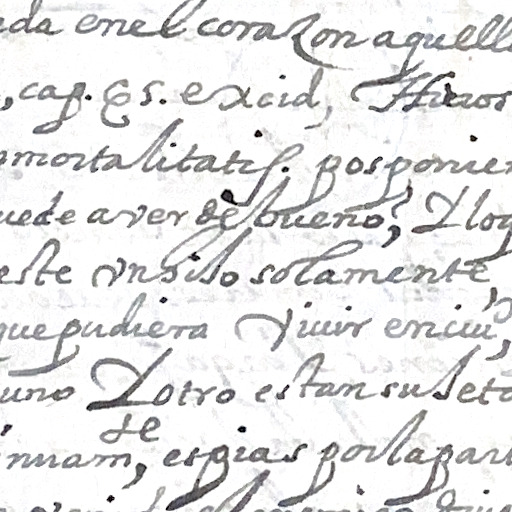 eda enel corazon aquell
, cap. 65. excid, Hieros
mmortalitatis. posponien
uede aver de bueno, Y loq
este vn hilo solamente
que pudiera Viuir enciu
uno Y otro estan sugeto
inuam,de espias por la part